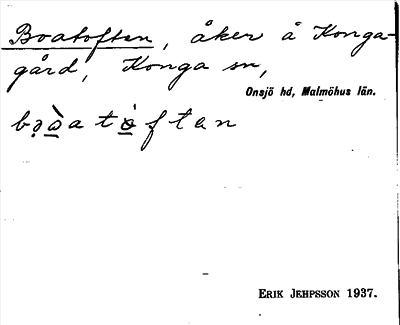 Boatoften, åker å Konga-
gård, Konga sn,
Onsjö hd, Malmöhus län.
ERIK JEHPSSON 1937.